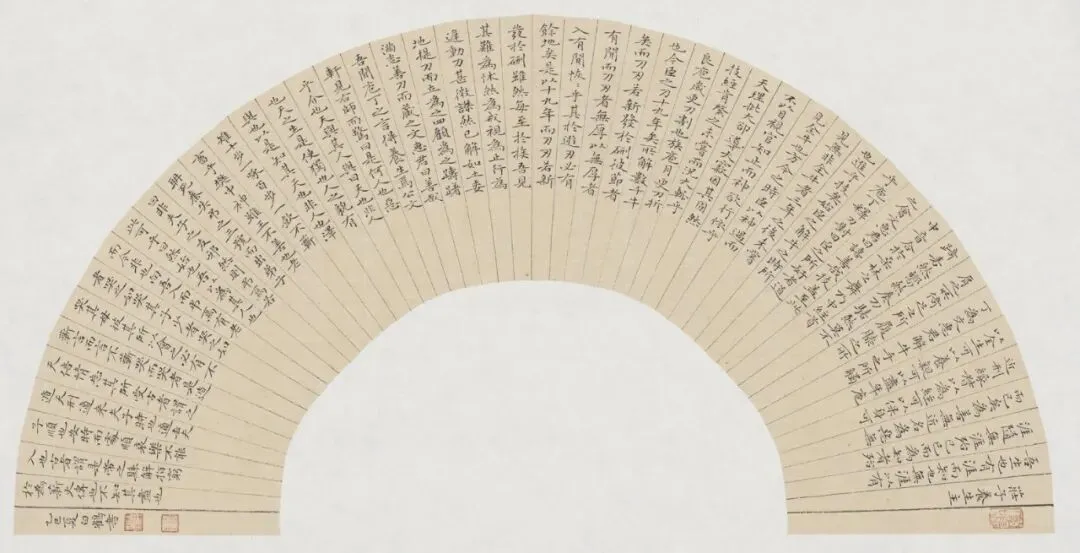 莊子養生主
吾生也有涯而知也無涯以有
涯隨無涯殆已已而為知者殆
而已矣為善無近名為惡無
近刑緣督以為經可以保身可
以全生可以養親可以盡年庖
丁為文惠君解牛手之所觸
肩之所倚足之所履膝之所
踦砉然嚮然奏刀騞然莫不
中音合於桑林之舞乃中經首
之會文惠君曰譆善哉技蓋至此
乎庖丁釋刀對曰臣之所好者道
也進乎技矣始臣之解牛之時所
見無非全牛者三年之後未嘗
見全牛也方今之時臣以神遇而
不以目視官知止而神欲行依乎
天理批大卻導大窾因其固然
技經肯綮之未嘗而況大軱乎
良庖歲更刀割也族庖月更刀折
也今臣之刀十九年矣所解數千牛
矣而刀刃若新發於硎彼節者
有閒而刀刃者無厚以無厚者
入有閒恢恢乎其於遊刃必有
餘地矣是以十九年而刀刃若新
發於硎雖然每至於族吾見
其難為怵然為戒視為止行為
遲動刀甚微謋然已解如土委
地提刀而立為之四顧為之躊躇
滿志善刀而藏之文惠君曰善哉
吾聞庖丁之言得養生焉公文
軒見右師而驚曰是何人也惡
乎介也天與其人與曰天也非人
也天之生是使獨也人之貌有
與也以是知其天也非人也澤
雉十步一啄百步一飲不蘄
畜乎樊中神雖王不善也老
聃死秦失弔之三號而出弟子
曰非夫子之友邪曰然然則弔焉若
此可乎曰然始也吾以為其人也
而今非也向吾入而弔焉有老者
哭之如哭其子少者哭之如
哭其母彼其所以會之必有不
蘄言而言不蘄哭而哭者是遁
天倍情忘其所受古者謂之
遁天刑適來夫子時也適去夫
子順也安時而處順哀樂不能
入也古者謂是帝之縣解指窮
於為薪火傳也不知其盡也
乙巳夏白鶴書